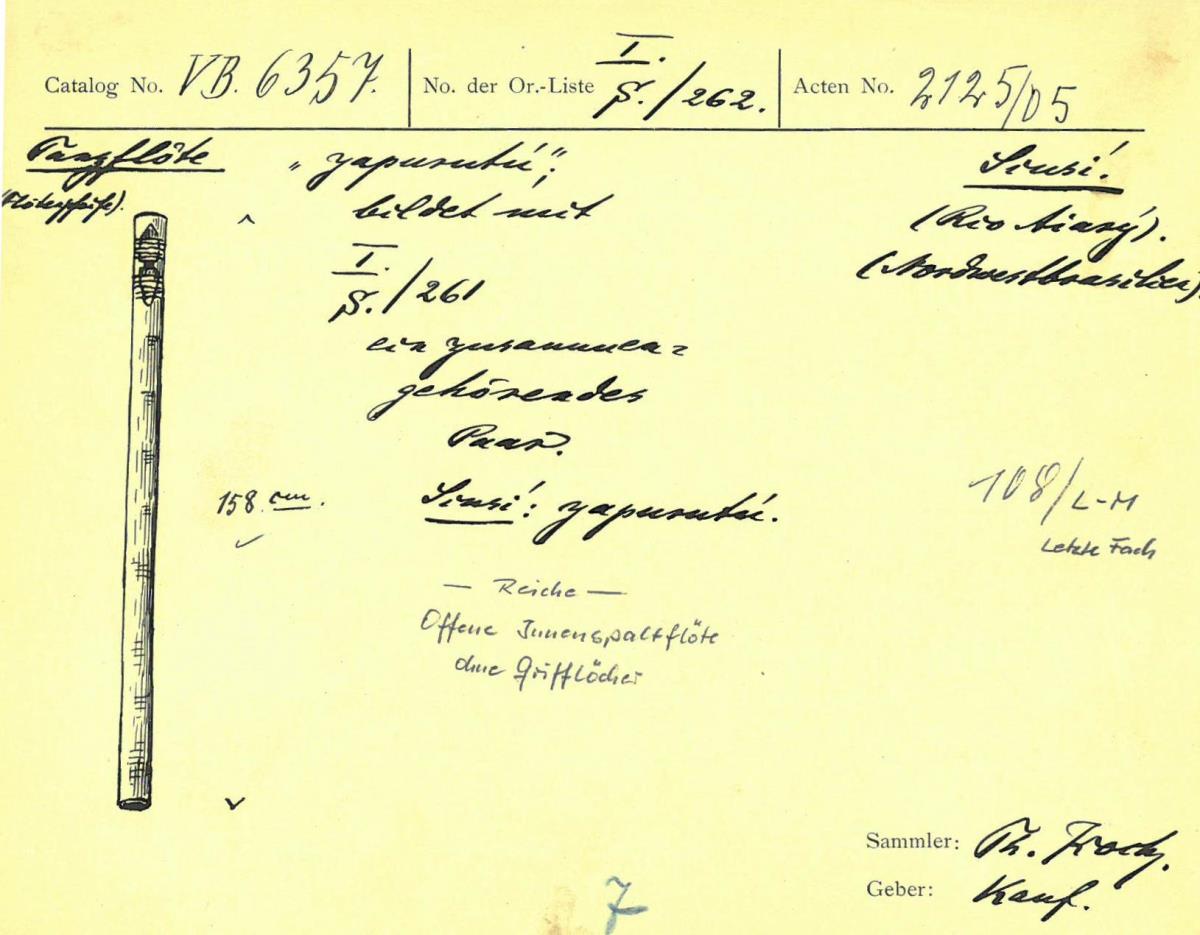 Catalog No. VB. 6357. No. der Or.-Liste I./S./262. Acten No. 2125/05
Tanzflöte „yapurutú“; Siusí.
(Flötenpfeife). bildet mit (Rio Aiarý).
I./S./261 (Nordwestbrasilien).
ein zusammen=
gehörendes
Paar.
158 cm. Siusí: yapurutú. 108/L-M
Letzte Fach
— Reiche —
Offene Innenspaltflöte
ohne Grifflöcher
Sammler: Th. Koch.
Geber: Kauf.
7